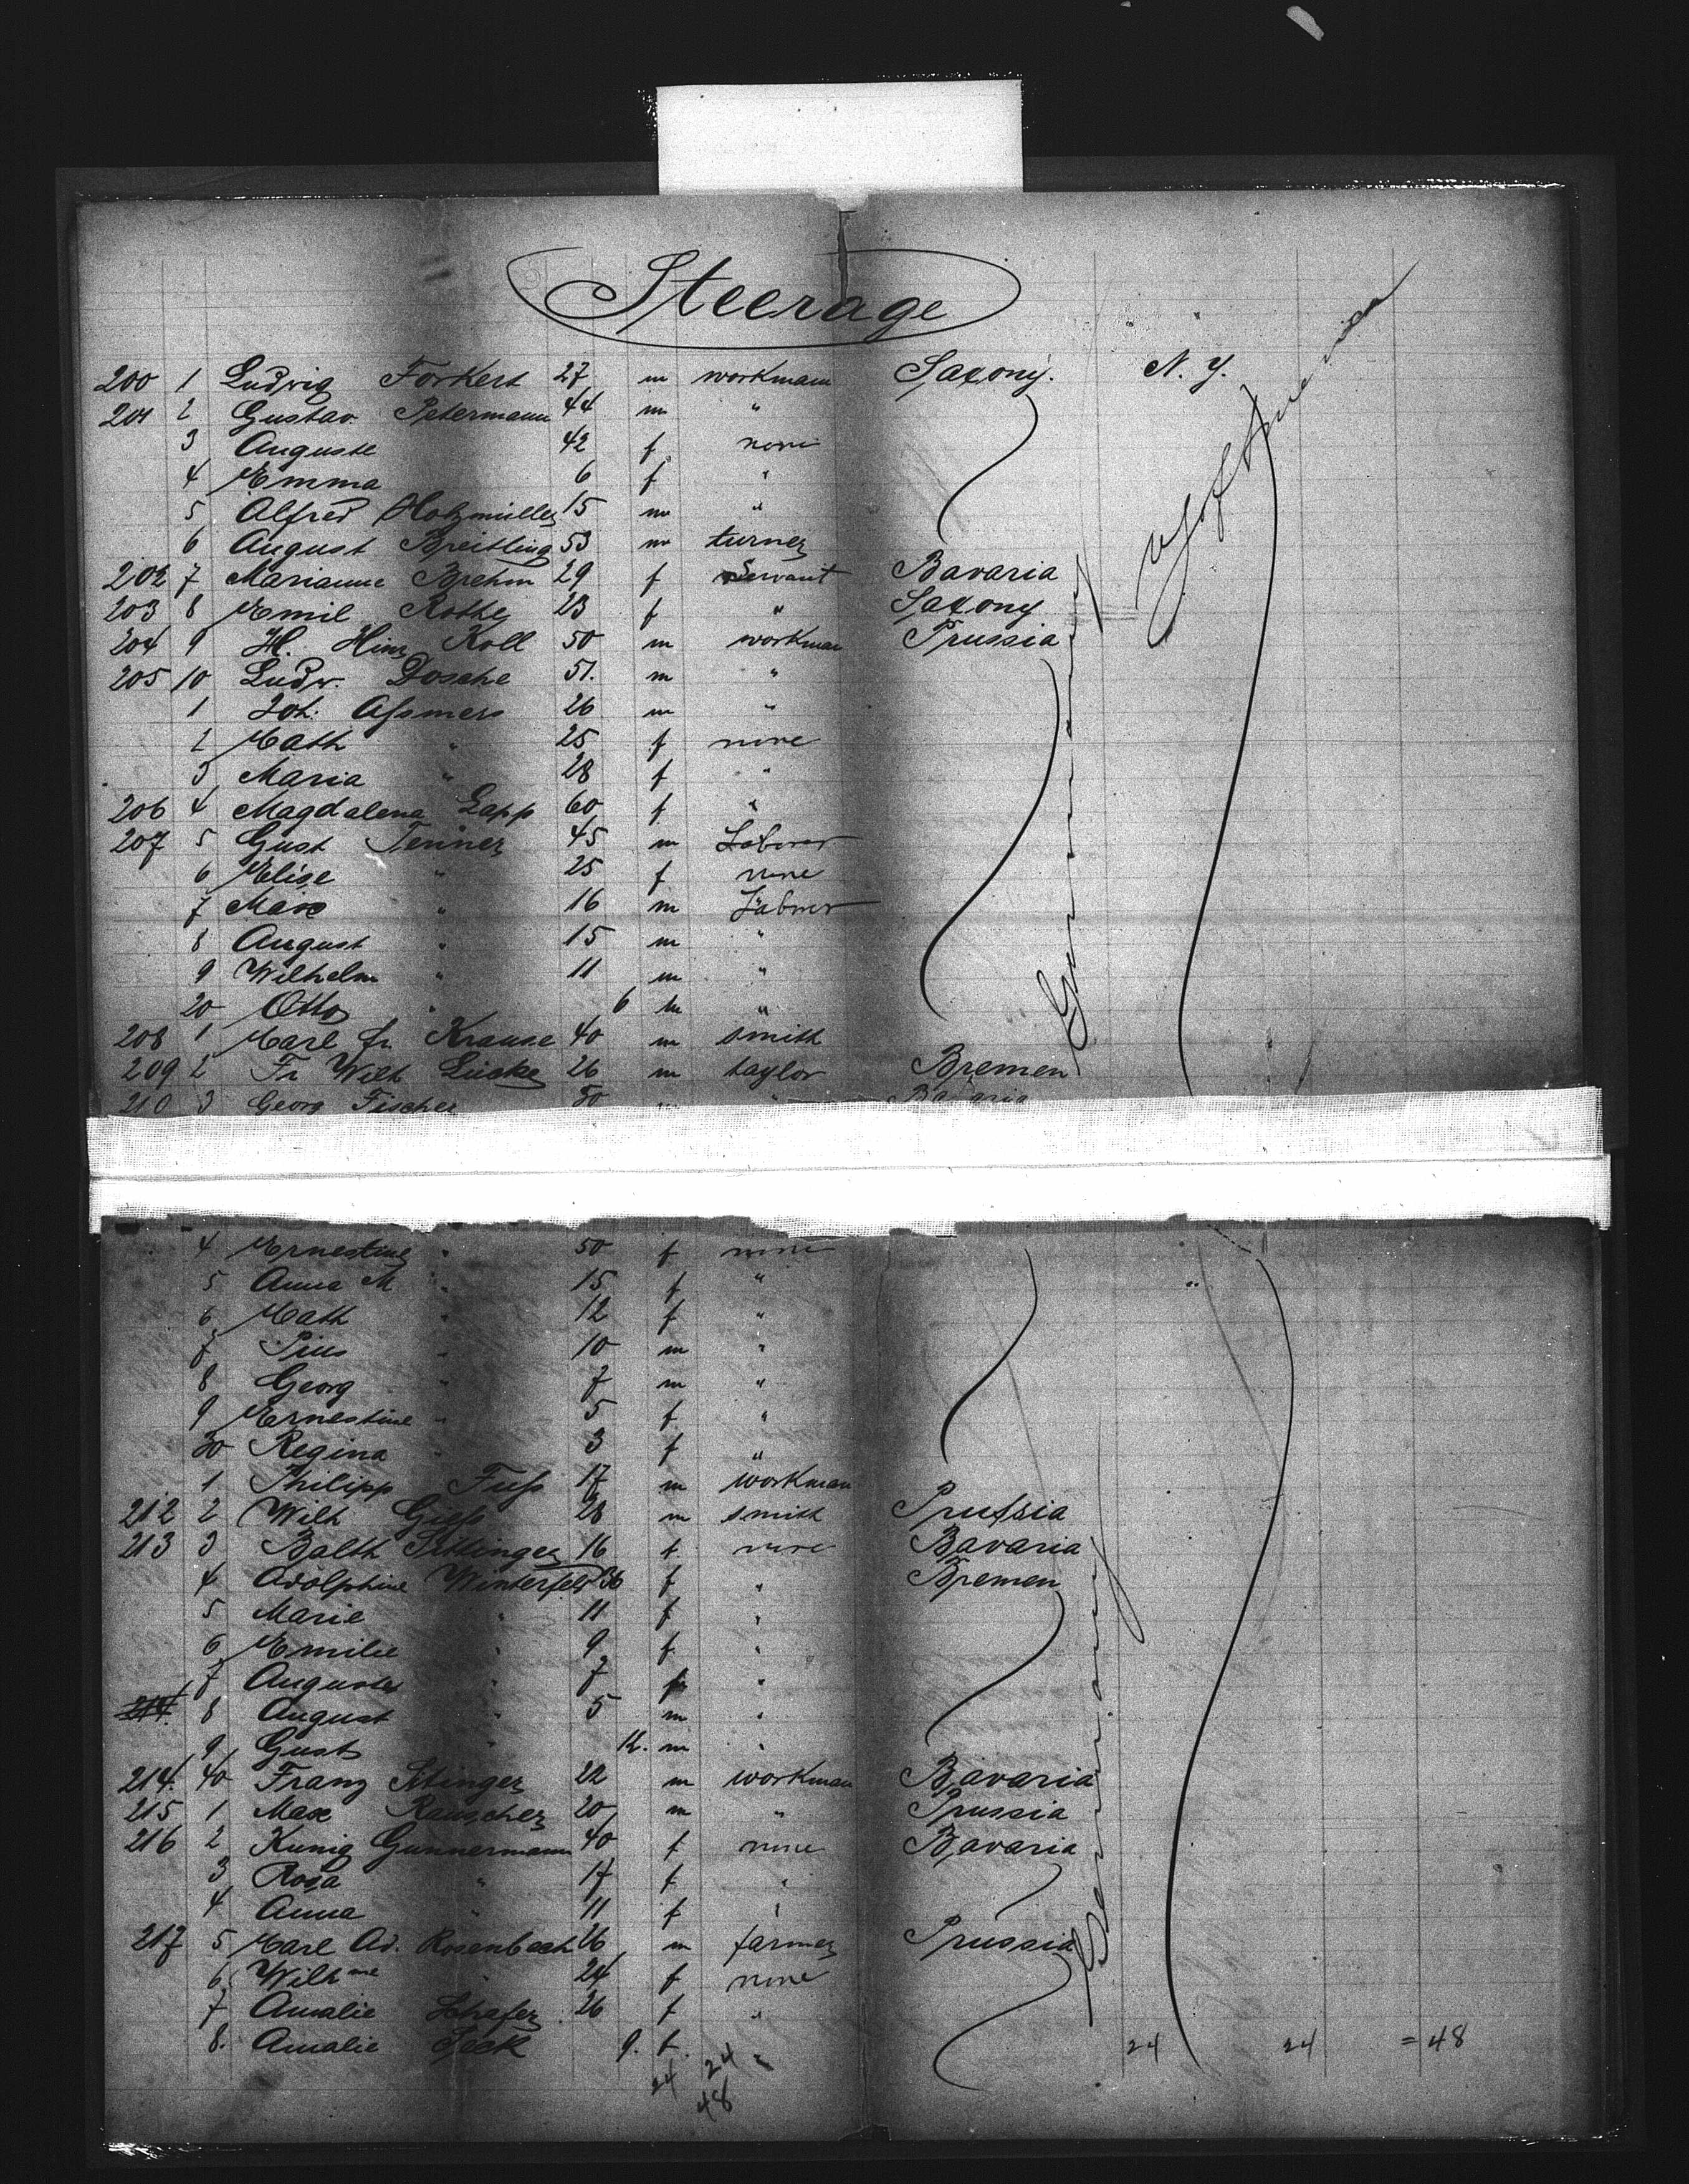 Steerage
200 1 Ludwig Forkert 27 m workman Saxony. N. Y.
201 2 Gustav Petermann 44 m "
3 Auguste 42 f none
4 Emma 6 f "
5 Alfred Holzmüller 15 m "
6 August Breitling 53 m turner
202 7 Marianne Brehm 29 f Servant Bavaria
203 8 Emil Rothe 23 f " Saxony
204 9 H. Hinr Koll 50 m workman Prussia
205 10 Ludw. Dosche 51. m "
1 Joh. Assmers 26 m "
2 Cath " 25 f none
3 Maria " 28 f "
206 4 Magdalena Lapp 60 f "
207 5 Gust Tenner 45 m Laborer
6 Elise " 25 f none
7 Max " 16 m Laborer
8 August " 15 m "
9 Wilhelm " 11 m "
20 Otto " 6 m "
208 1 Carl Fr. Krause 40 m smith
209 2 Fr Wilh Lücke 26 m taylor Bremen
210 3 Georg Fischer 50 m " Bavaria
Germany
U S of America
4 Ernestine " 50 f none
5 Anna M " 15 f " "
6 Cath " 12 f "
7 Pius " 10 m "
8 Georg " 7 m "
9 Ernestine " 5 f "
30 Regina " 3 f "
1 Philipp Fuss 17 m workman
212 2 Wilh Giess 28 m smith Prussia
213 3 Balth Sittinger 16 f none Bavaria
4 Adolphine Winterfeld 36 f " Bremen
5 Marie " 11 f "
6 Emilie " 9 f "
7 Auguste " 7 f "
214. 8 August " 5 m "
9 Gust " 12. m "
214. 40 Franz Sitinger 22 m workman Bavaria
215 1 Max Rauscher 20 m " Prussia
216 2 Kunig Gunnermann 40 f none Bavaria
3 Rosa " 17 f "
4 Anna " 11 f "
217 5 Carl Ad. Rosenbach 26 m farmer Prussia
6 Wilhme " 24 f none
7 Amalie Schafer 26 f "
8. Amalie 9. f. " 24 24 = 48
Germany
24 24
48